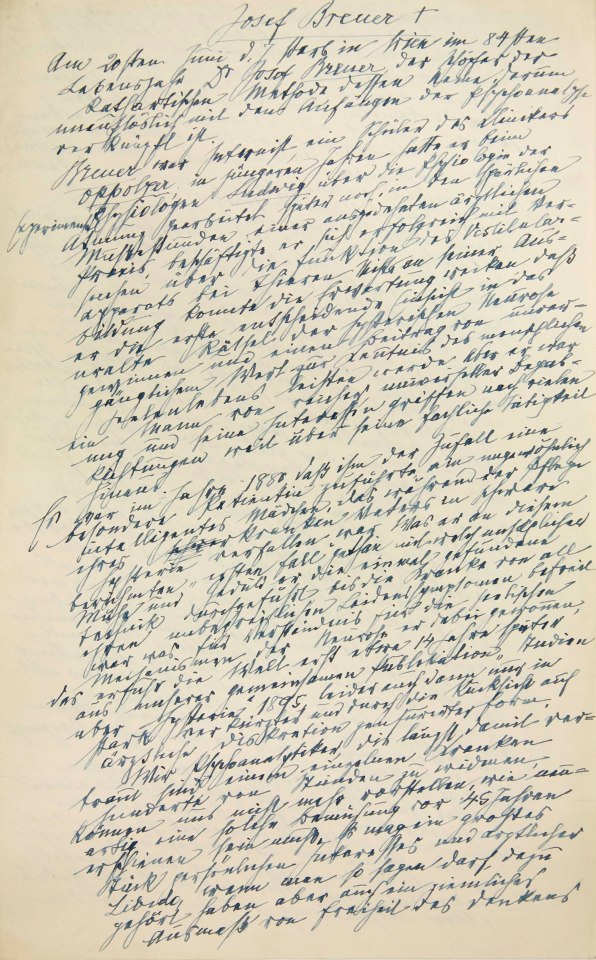 Josef Breuer †
Am 20sten Juni d. J. starb in Wien im 84sten
Lebensjahr Dr Josef Breuer der Schöpfer der
kathartischen Methode dessen Name darum
unauslöslich mit den Anfängen der Psychoanalyse
verknüpft ist.
Breuer war Internist, ein Schüler des Klinikers
Oppolzer, in jüngeren Jahren hatte er beim
Physiologen Ludwig über die Physiologie der
Atmung gearbeitet, später noch in den spärlichen
experimente
Mußestunden einer ausgedehnten ärztlichen
Praxis beschäftigte er sich erfolgreich mit Ver-
suchen über die Funktion des Vestibular-
apparats bei Tieren. Nichts an seiner Aus-
bildung konnte die Erwartung wecken daß
er die erste entscheidende Einsicht in das
uralte Rätsel der hysterischen Neurose
gewinnen und einen Beitrag von unver-
gänglichem Wert zur Kentnis des menschlichen
Seelenlebens leisten werde. Aber er war
ein Mann von reicher universeller Begab-
ung und seine Interessen griffen nach vielen
Richtungen weit über seine fachliche Tätigkeit
hinaus.
Es war im Jahre 1880 daß ihm der Zufall eine
besondere Patientin zuführte, ein ungewöhnlich
intelligentes Mädchen, das während der Pflege
ihres kranken Vaters in schwere
Hysterie verfallen war. Was er an diesem
berühmten „ersten Fall“ getan mit welch unsäglichen
Mühe und Geduld er die einmal gefundene
Technik durchgeführt bis die Kranke von all
ihren unbegreiflichen Leidenssymptomen befreit
war, was für Verständnis für die seelischen
Mechanismen der Neurose er dabei gewonnen,
das erfuhr die Welt erst etwa 14 Jahre später
aus unserer gemeinsamen Publikation „Studien
über Hysterie“ 1895, leider auch dann nur in
stark verkürzter und durch die Rücksicht auf
ärztliche Diskretion zensurirter Form.
Wir Psychoanalytiker, die längst damit ver-
traut sind einem einzelnen Kranken
hunderte von Stunden zu widmen,
können uns nicht mehr vorstellen, wie neu-
artig eine solche Bemühung vor 45 Jahren
erschienen sein muß. Es mag ein großes
Stück persönlichen Interesses und ärztlicher
Libido, wenn man so sagen darf, dazu
gehört haben aber auch ein ziemliches
Ausmaß von Freiheit des Denkens